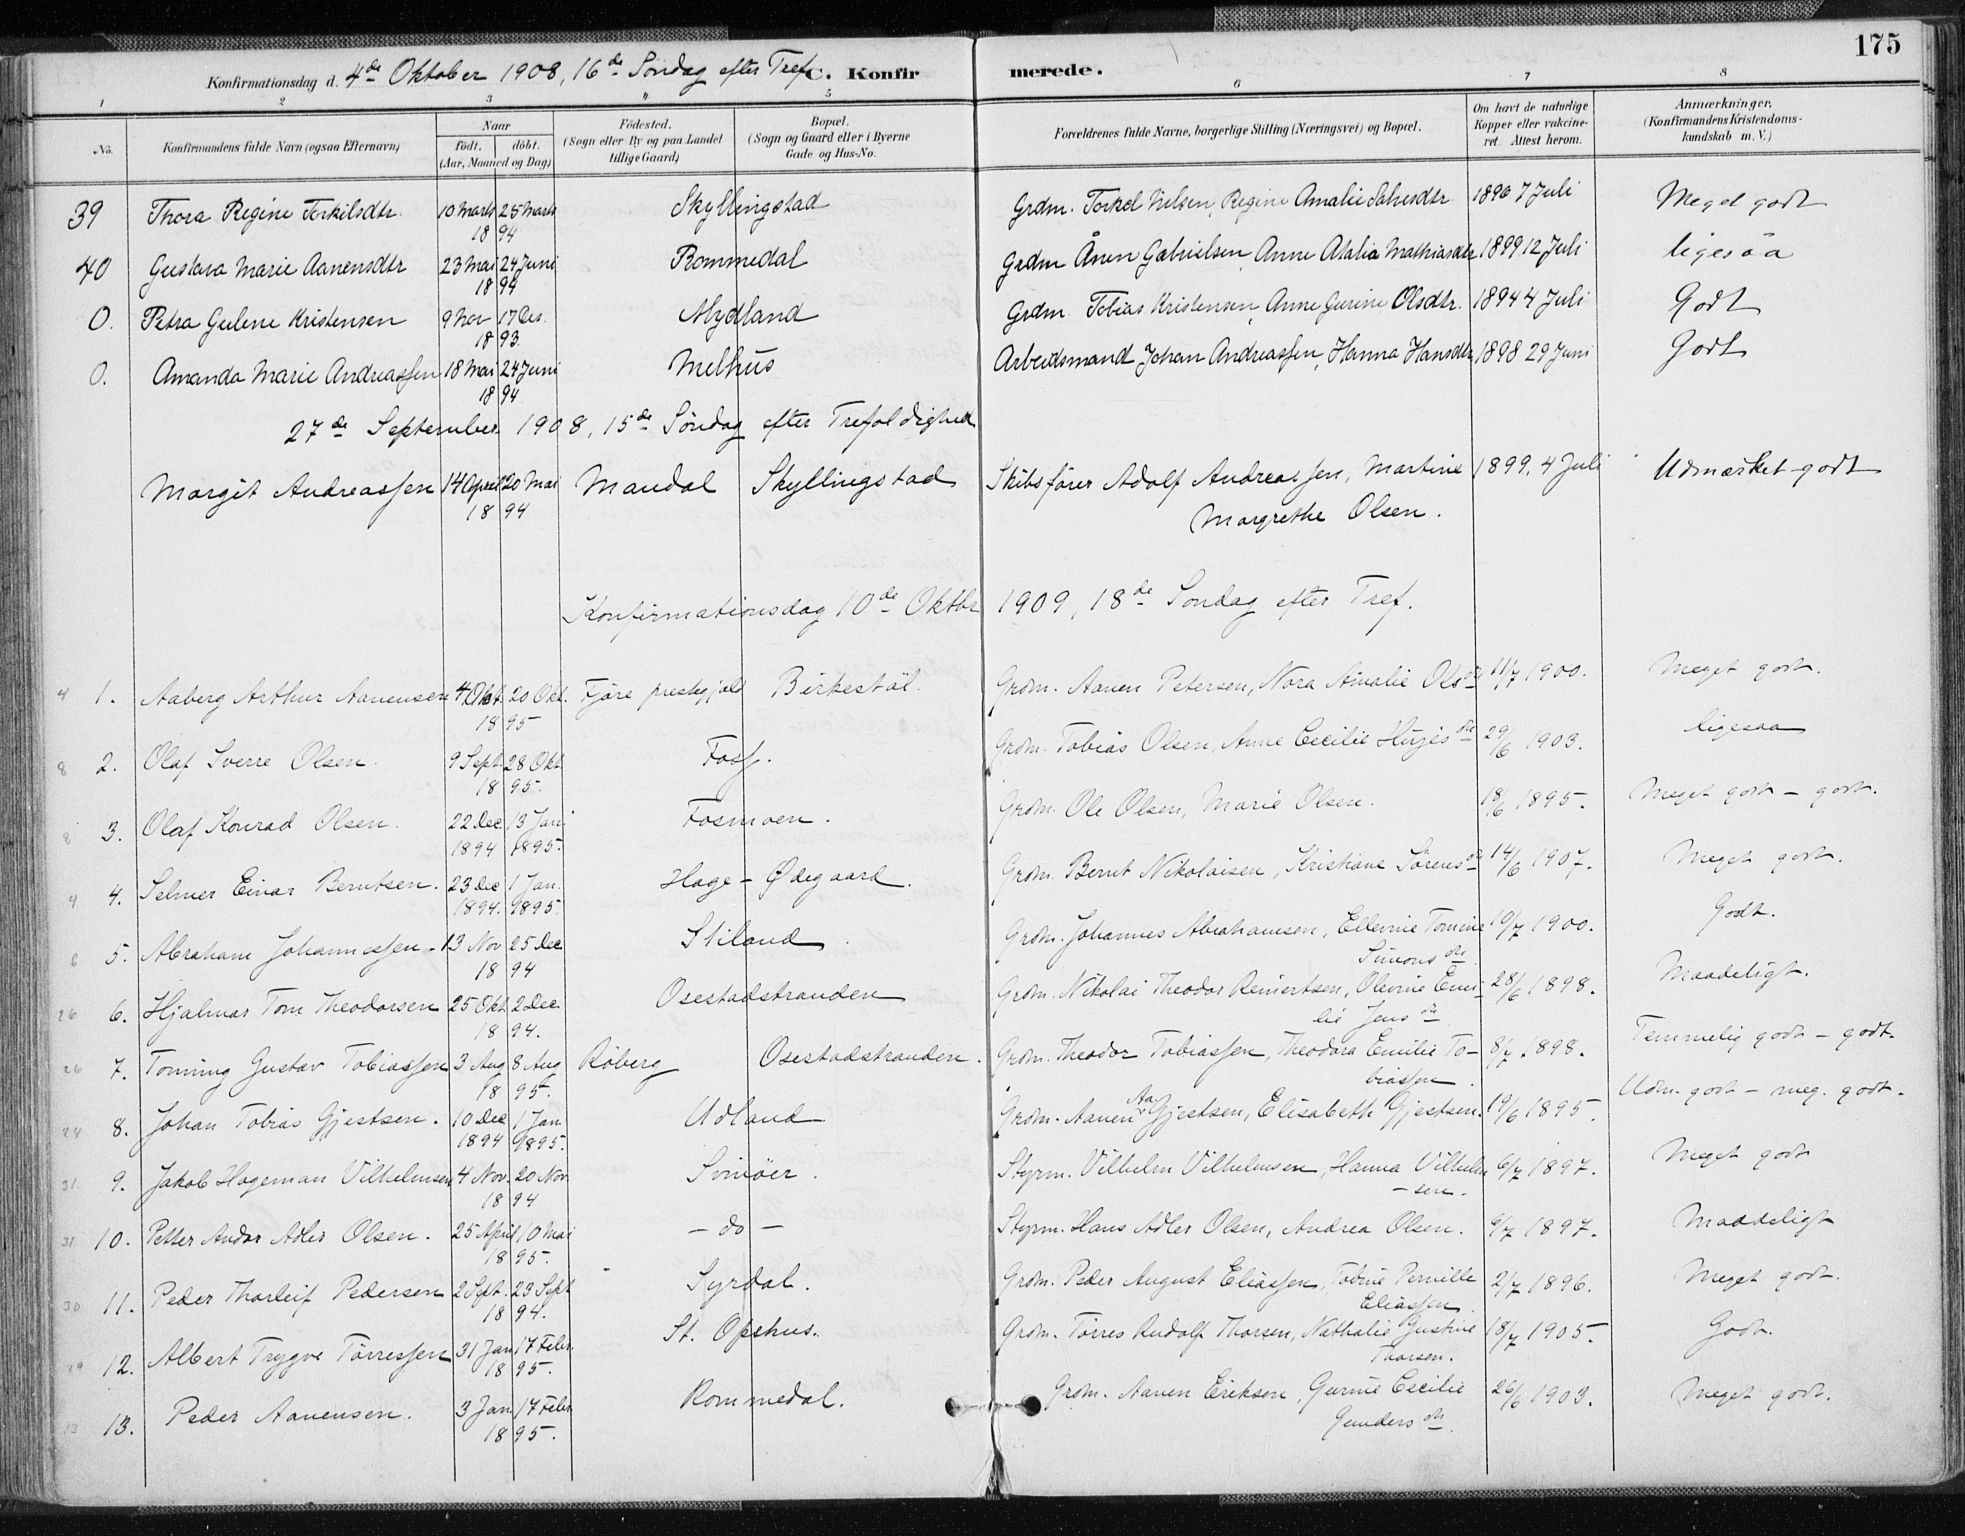 175
Konfirmationsdag d. 4de Oktober 1908, 16de Søndag efter Tref. C. Konfirmerede.
1 2 3 4 5 6 7 8
No. Konfirmandens fulde Navn (ogsaa Efternavn) Naar født. døbt. (Aar, Maaned og Dag) Fødested. (Sogn eller By og paa Landet tillige Gaard) Bopæl. (Sogn og Gaard eller i Byerne Gade og Hus-No. Forældrenes fulde Navne, borgerlige Stilling (Næringsvei) og Bopæl. Om havt de naturlige Kopper eller vakcineret. Attest herom. Anmærkninger, (Konfirmandens Kristendomskundskab m. V.)
39 Thora Regine Torkilsdtr. 10 Marts 25 Marts Skyllingstad Grdm. Torkel Nilsen, Regine Amalie 1896 7 Juli Meget godt
18 94
40 Gustava Marie Aanensdtr 23 Mai 24 Juni Rommedal Grdm Ånen Gabrielsen, Anne Atalia Mathiasdtr 1899 12 Juli ligesåa
18 94
0. Petra Gulene Kristensen 9 Nov 17 Des. Mydland Grdm. Tobias Kristensen, Anne Gurine Olsdtr. 1894 4 Juli Godt
18 93
0. Amanda Marie Andreassen 18 Mai 24 Juni Melhus Arbeidsmand Johan Andreassen, Hanna Hansdtr 1898 29 Juni Godt
18 94
27de September 1908, 15de Søndag efter Trefoldighed
Margit Andreassen 14 April 20 Mai Mandal Skyllingstad Skibsfører Adolf Andreassen, Martine 1899, 4 Juli Udmærket godt
18 94 Margrethe Olsen.
Konfirmationsdag 10de Oktbr 1909, 18de Søndag efter Tref.
4 1. Aaberg Arthur Aanensen 4 Okt. 20 Okt. Fjære prestegjæld Birkestøl. Grdm. Aanen Petersen, Nora Amalie Olsdtr 11/7 1900. Meget godt.
18 95
8 2. Olaf Sverre Olsen. 9 Sept. 28 Okt Foss. Grdm. Tobias Olsen, Anne Cecilie 29/6 1903. ligesaa
18 95.
8 3. Olaf Konrad Olsen. 22 Dec. 13 Jan. Fosmoen. Grdm. Ole Olsen, Marie Olsen. 18/6 1895. Meget godt – godt.
1894 1895.
4 4. Selmer Einar Berntsen. 23 Dec 1 Jan. Hage-Ødegaard. Grdm. Bernt Nikolaisen, Kristiane Sørensdtr 14/6 1907. Meget godt.
1894. 1895.
6 5. Abraham Johannessen. 13 Nov 25 Dec Stiland. Grdm. Johannes Abrahamsen, Ellevine Tomine 19/7 1900. Godt.
18 94 Simonsdtr.
26 6. Hjalmar Tom Theodorsen 25 Okt. 2 Dec. Osestadstranden Grdm. Nikolai Theodor Reinertsen, Olevine Emi- 28/6 1898. Maadeligt.
18 94. lie Jensdtr
26 7. Tonning Gustav Tobiassen 3 Aug 8 Aug Røberg Osestadstranden. Grdm. Theodor Tobiassen, Theodora Emilie To- 8/7 1898. Temmelig godt – godt.
18 95. biassen.
24 8. Johan Tobias Gjestsen. 10 Dec 1 Jan. Udland Grdm. Aanen Aa. Gjestsen, Elisabeth Gjestsen. 19/6 1895. Udm. godt – meg. godt.
1894 1895.
31. 9. Jakob Hageman Vilhelmsen 4 Nov. 20 Nov. Svinøer. Styrm. Vilhelm Vilhelmsen, Hanna Vilhelm 6/7 1897. Meget godt
18 94 – sen.
31 10. Petter Andor Adler Olsen. 25 April 10 Mai – do – Styrm. Hans Adler Olsen, Andrea Olsen. 6/7 1897. Maadeligt
18 95.
30 11. Peder Thorleif Pedersen 2 Sept. 23 Sept Syrdal. Grdm. Peder August Eliassen, Tobine Pernille 2/7 1896. Meget godt.
18 94. Eliassen.
29 12. Albert Trygve Tørressen 31 Jan. 17 Febr. St. Opshus. Grdm. Tørres Rudolf Thorsen, Nathalie Gustine 18/7 1905. Godt.
18 95. Thorsen.
13 13. Peder Aanensen. 3 Jan. 17 Febr. Rommedal. Grdm. Aanen Eriksen, Gurine Cecilie 26/6 1903. Meget godt.
18 95. Gundersdtr.